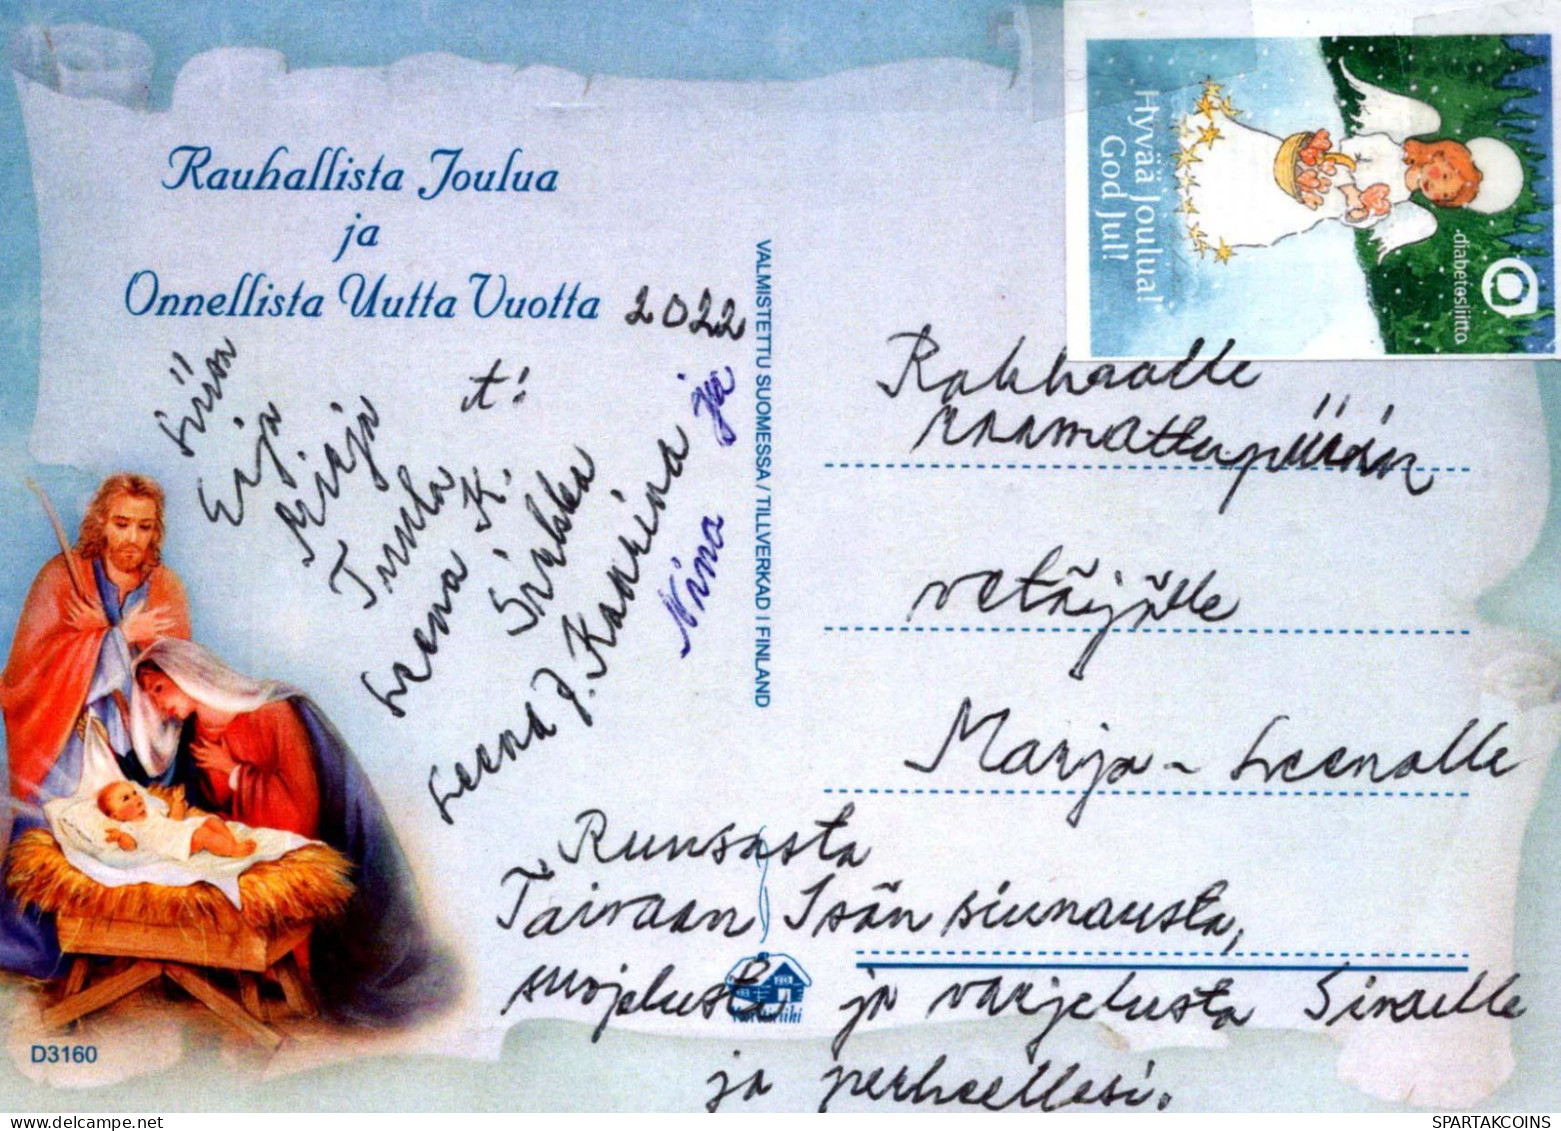 Rauhallista Joulua
ja
Onnellista Uutta Vuotta 2022
t:
Siiron
Eija
Mirja
Tuula
Leena K.
Sirkka
Leena J. Kaarina ja
Nina
VALMISTETTU SUOMESSA / TILLVERKAD I FINLAND
Hyvää Joulua!
God Jul!
-diabetesliitto
Rakkaalle
raamattupiirin
vetäjälle
Marja-Leenalle
Runsasta
Taivaan Isän siunausta,
suojelusta ja varjelusta Sinulle
ja perheellesi.
Korttiriihi
D3160
www.delcampe.net
SPARTAKCOINS